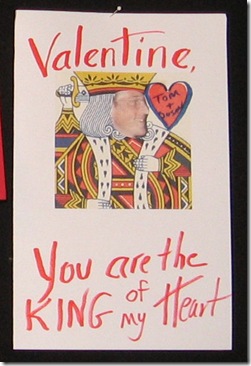 Valentine,
Tom +
You are the
KING of my Heart